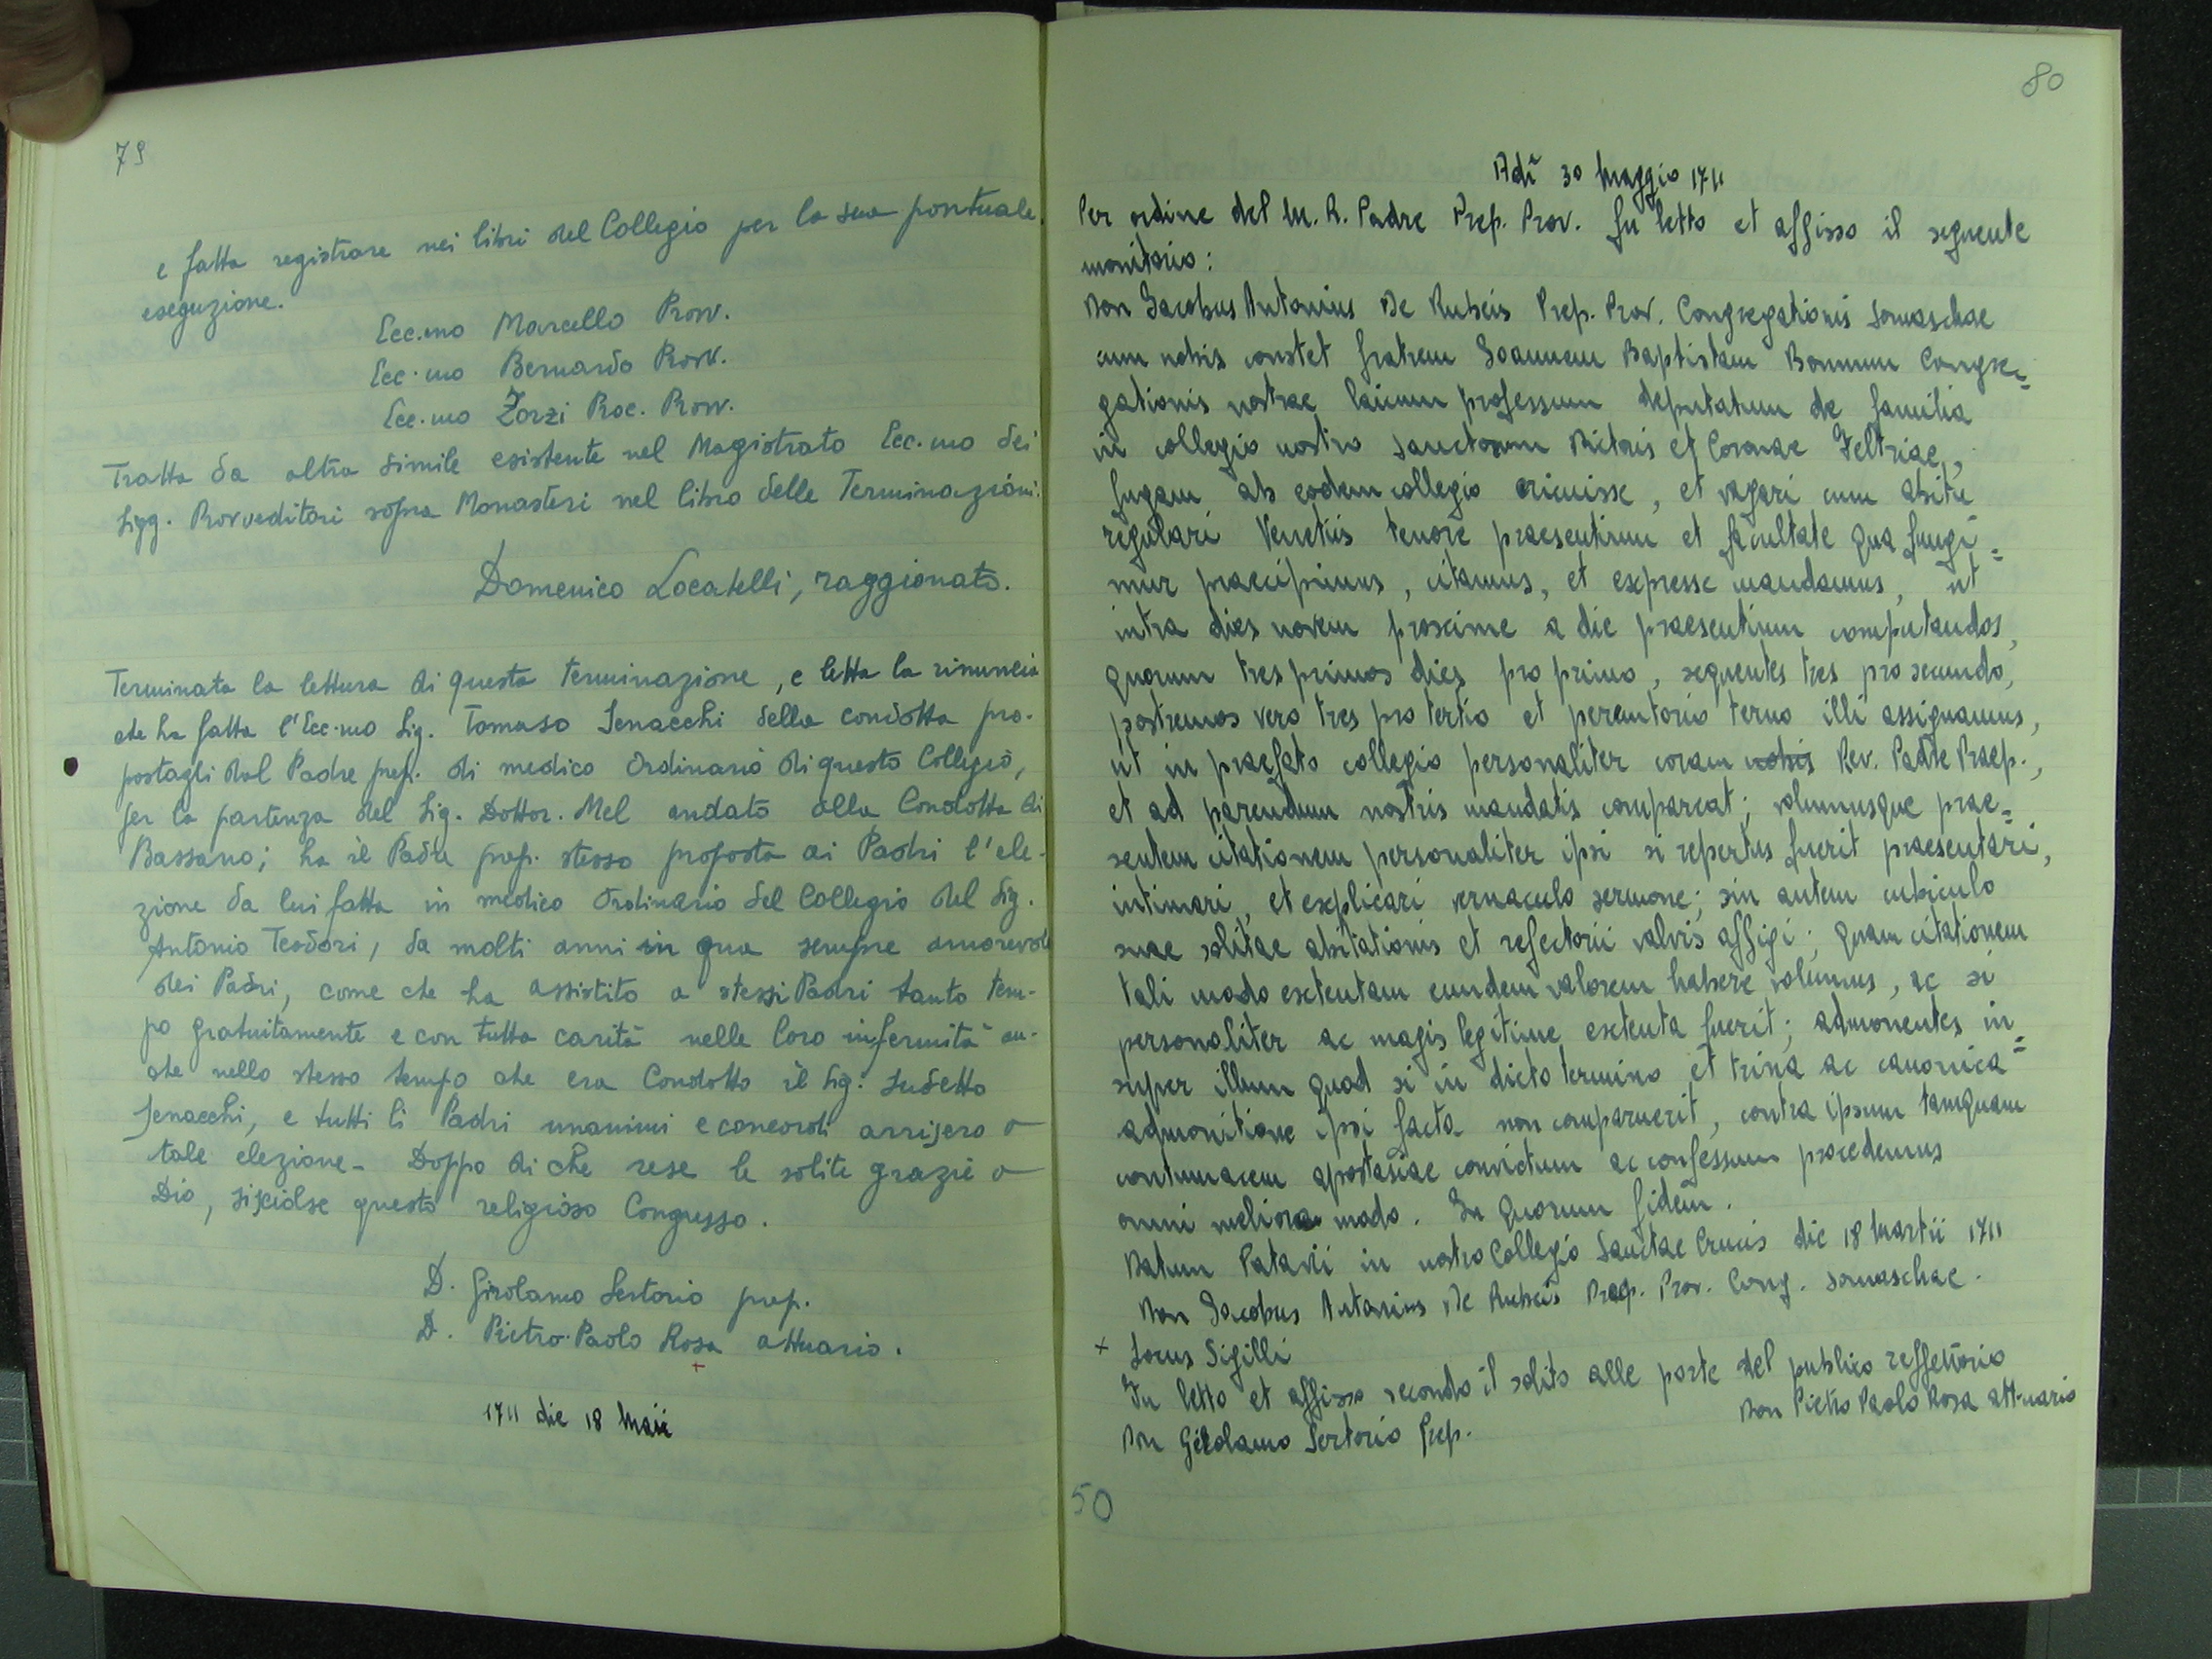 79
e fatta registrare nei libri del Collegio per la sua pontuale
eseguzione.
Ecc.mo Marcello Prov.
Ecc.mo Bernardo Prov.
Ecc.mo Zorzi Proc. Prov.
Tratta da altra simile esistente nel Magistrato Ecc.mo dei
Sigg. Provveditori sopra Monasteri nel libro delle Terminazioni.
Domenico Locatelli, raggionato.
Terminata la lettura di questa terminazione, e letta la rinuncia
che ha fatta l'Ecc.mo Sig. Tomaso Senacchi della condotta pro-
postagli dal Padre prep. di medico Ordinario di questo Collegio,
per la partenza del Sig. Dottor. Mel andato alla Condotta di
Bassano; ha il Padre prep. stesso proposta ai Padri l'ele-
zione da lui fatta in medico Ordinario del Collegio del Sig.
Antonio Teodori, da molti anni in qua sempre amorevole
dei Padri, come che ha assistito a stessi Padri tanto tem-
po gratuitamente e con tutta carità nelle loro infermità an-
che nello stesso tempo che era Condotto il Sig. sudetto
Senacchi, e tutti li Padri unanimi e concordi arrisero a
tale elezione - Doppo di che rese le solite grazie a
Dio, si sciolse questo religioso Congresso.
D. Girolamo Sertorio prep.
D. Pietro Paolo Rosa attuario.
+
1711 die 18 Maii
80
Adi 30 Maggio 1711
Per ordine del M. R. Padre Prep. Prov. fu letto et affisso il seguente
monitorio:
Don Jacobus Antonius De Rubeis Prep. Prov. Congregationis Somaschae
cum nobis constet fratrem Joannem Baptistam Bonnum Congre=
gationis nostrae laicum professum deputatum de familia
in collegio nostro Sanctorum Victoris et Coronae Feltriae,
fugam ab eodem collegio aricuisse, et vagari cum abitu
regulari Venetiis tenore praesentium et facultate qua fungi=
mur praecipimus, citamus, et expresse mandamus, ut
intra dies novem proxime a die praesentium computandos,
quorum tres primos dies pro primo, sequentes tres pro secundo,
postremos vero tres pro tertio et peremtorio termo illi assignamus,
ut in praefato collegio personaliter coram nobis Rev. Padre Praep.,
et ad parendum nostris mandatis compareat; volumusque prae=
sentem citationem personaliter ipsi si repertus fuerit praesentari,
intimari, et explicari vernaculo sermone; sin autem cubiculo
suae solitae abitationis et refectorii valvis affigi; quam citationem
tali modo extentam eumdem valorem habere volumus, ac si
personaliter ac magis legitime extenta fuerit; admonentes in=
super illum quod si in dicto termino et trina ac canonica
admonitione ipsi facta non comparuerit, contra ipsum tamquam
contumacem apostasiae convictum ac confessum procedemus
omni meliora modo. In quorum fidem.
Datum Patavii in nostro Collegio Sanctae Crucis die 18 Martii 1711
Don Jacobus Antonius De Rubeis Prep. Prov. Cong. Somaschae.
+ Locus Sigilli
Fu letto et affisso secondo il solito alle porte del publico reffettorio
Don Pietro Paolo Rosa attuario
Don Girolamo Sertorio Prep.
50